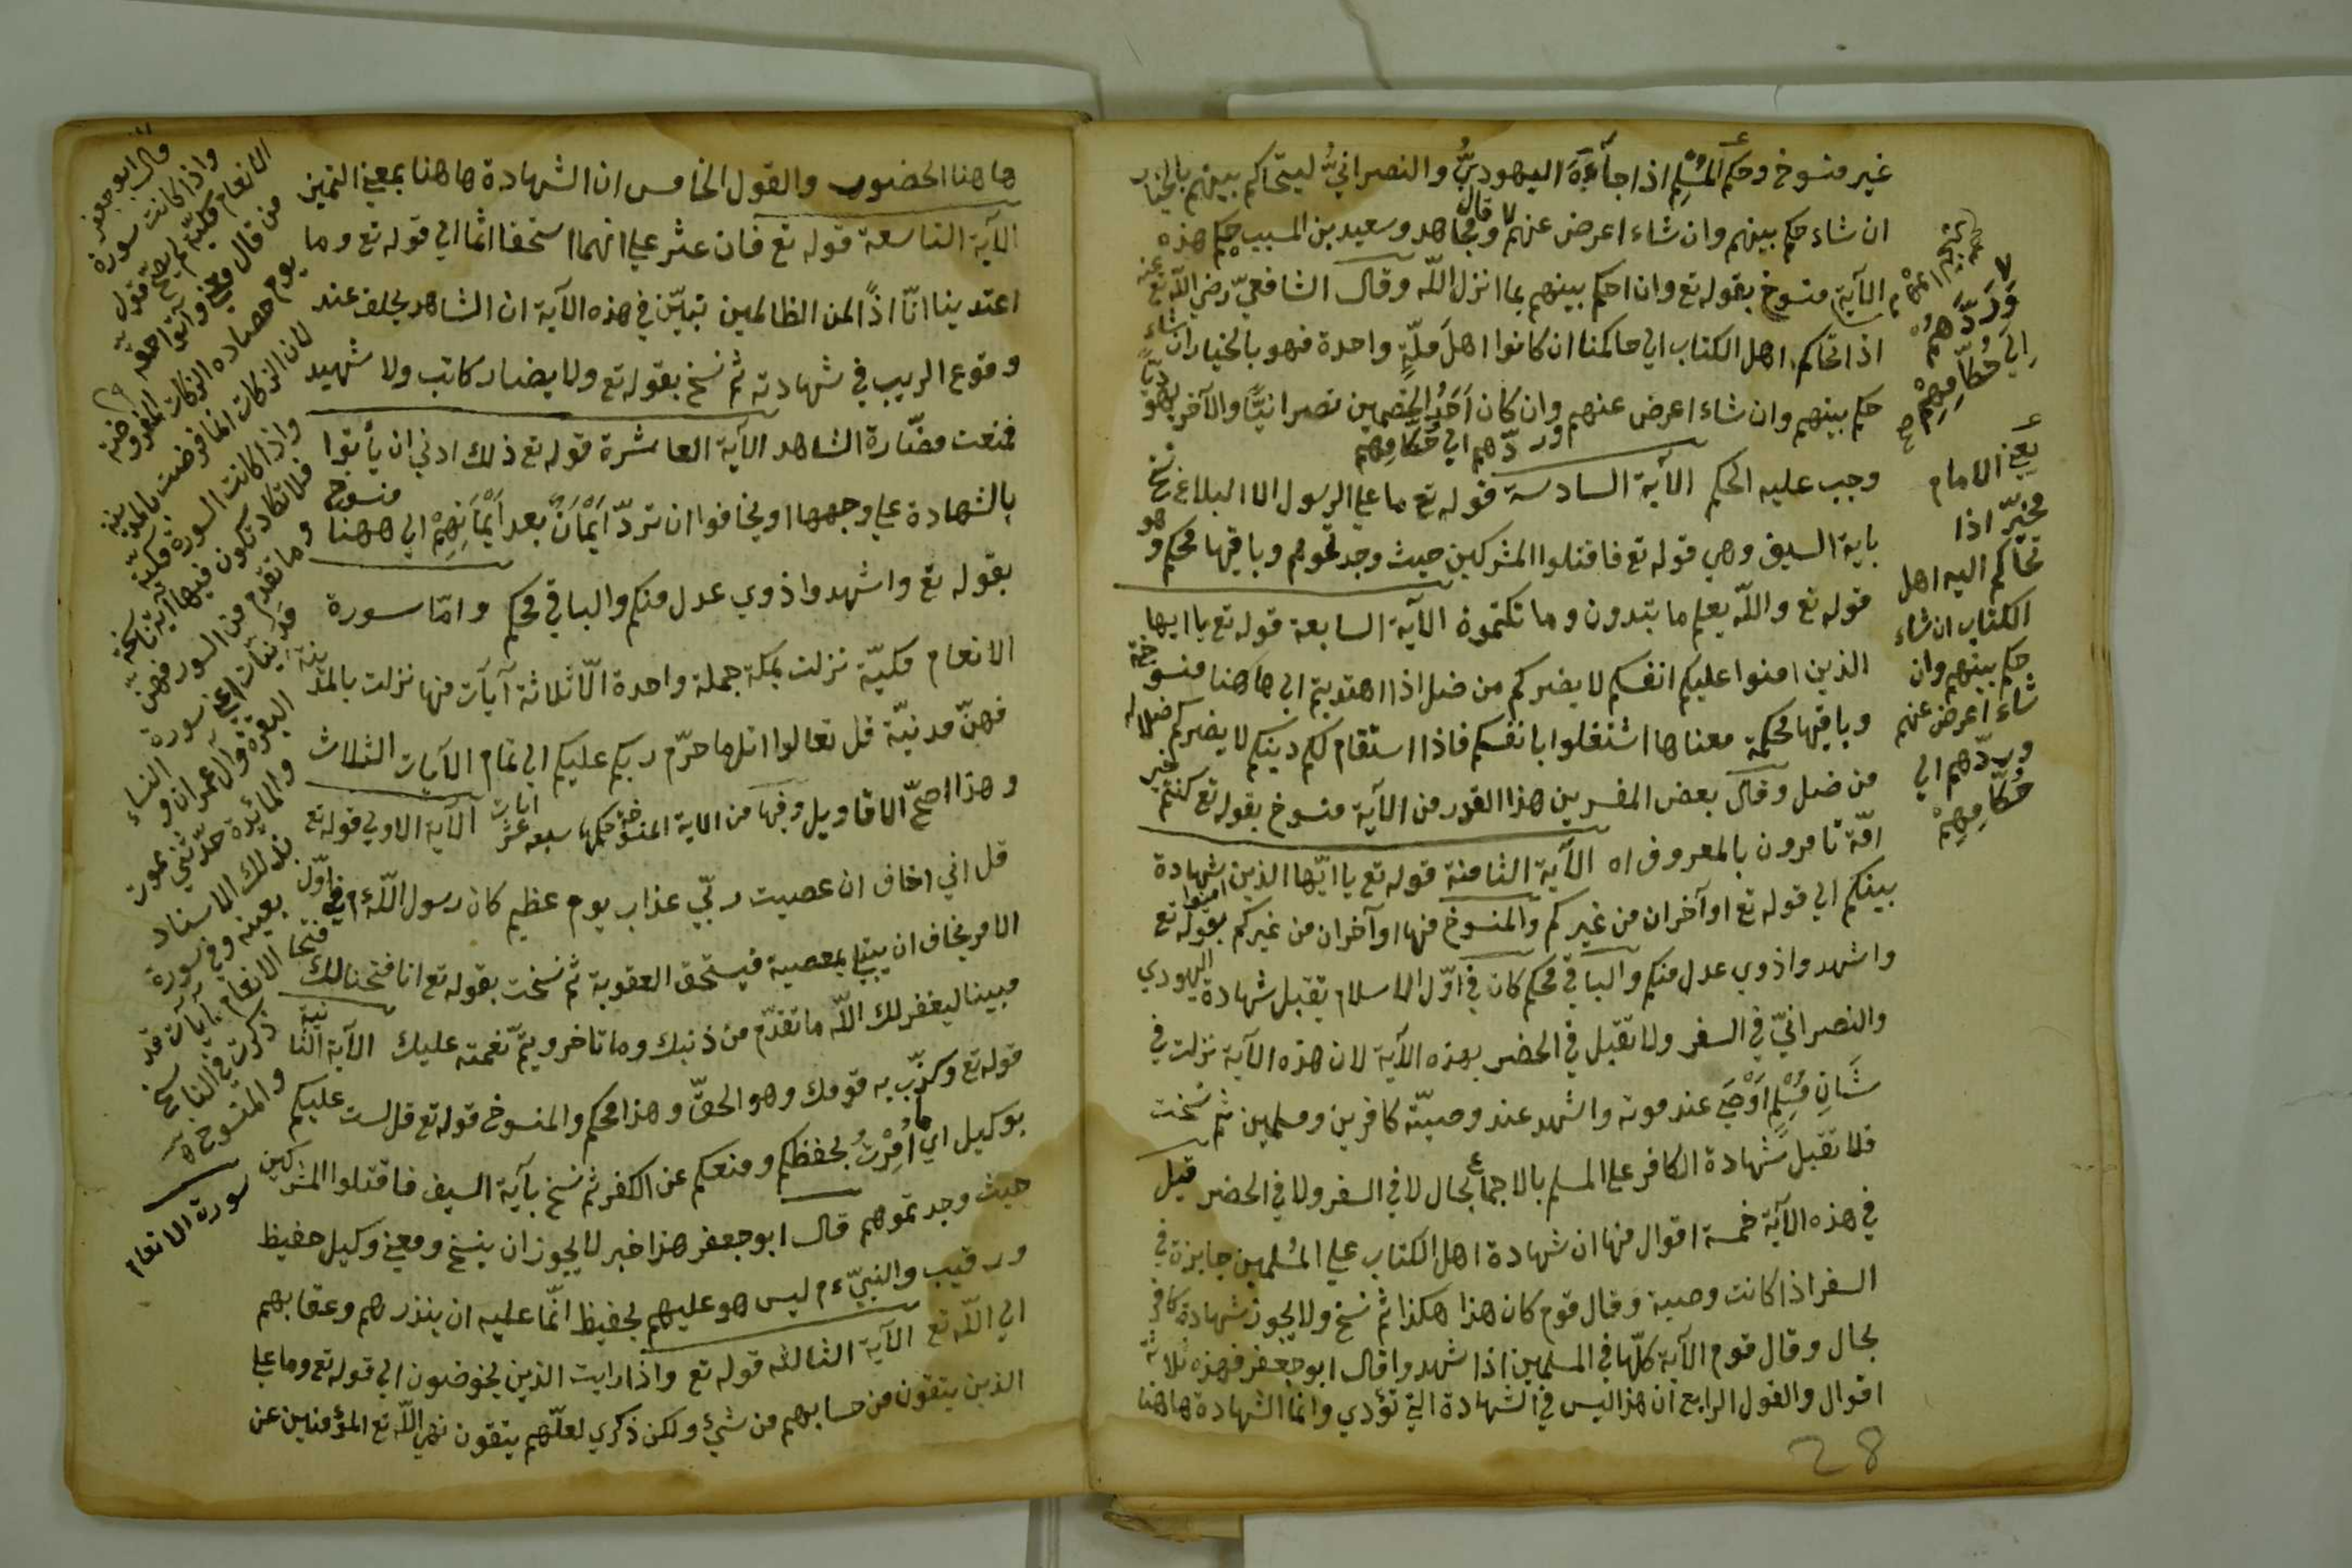 غير منسوخ وحكم المسلم اذا جآءَهُ اليهوديُّ والنصرانيُّ ليتحاكم بينهم بالخيار
ان شاء حكم بينهم وان شاء اعرض عنهم وقال مجاهد وسعيد بن المسيب حكم هذه
الآية منسوخ بقوله تع وان احكم بينهم بما انزل اللّه وقال الشافعيّ رضي اللّه تع عنه
اذا تحاكم اهل الكتاب الي حاكمنا ان كانوا اهلَ ملّةٍ واحدة فهو بالخيار ان شاء
حكم بينهم وان شاء اعرض عنهم وان كان اَحَدُ الخصمين نصرانيًّا والآخر يهوديًّا
وردّهم الي حُكّامِهم
وجب عليه الحكم الآية السادسة قوله تع ما علي الرسول الا البلاغ نسخ
باية السيف وهي قوله تع فاقتلوا المشركين حيث وجدتموهم وباقيها محكم وهو
قوله تع واللّه يعلم ما تبدون وما تكتمون الآية السابعة قوله تع ياايها
الذين امنوا عليكم انفسكم لا يضركم من ضل اذا اهتديتم الي هاهنا منسوخة
وباقيها محكمة معناها اشتغلوا بانفسكم فاذا استقام لكم دينكم لا يضركم ضلاله
من ضل وقال بعض المفسرين هذا القدر من الآية منسوخ بقوله تع كنتم خير
امّة تامرون بالمعروف اه الآية الثامنة قوله تع يا ايّها الذين امنوا شهادة
بينكم الي قوله تع او آخران من غيركم والمنسوخ منها او آخران من غيركم بقوله تع
واشهدوا ذوي عدل منكم والباقي محكم كان في اوّل الاسلام يقبل شهادة اليهودي
والنصرانيّ في السفر ولا تقبل في الحضر بهذه الآية لان هذه الآية نزلت في
شَانِ مُسْلِمٍ اَوْصَي عند موته واشهد عند وصيّته كافرين ومسلمين ثم نسخت
فلا تقبل شهادة الكافر علي المسلم بالاجماع بحال لا في السفر ولا في الحضر قيل
في هذه الآية خمسة اقوال منها ان شهادة اهل الكتاب علي المُسلمين جايزة في
السفر اذا كانت وصية وقال قوم كان هذا هكذا ثم نسخ ولا يجوز شهادة كافر
بحال وقال قوم الآية كلّها في المسلمين اذا شهدوا قال ابو جعفر فهذه ثلاثة
اقوال والقول الرابع ان هذا ليس في الشهادة التي تؤدي وانما الشهادة هاهنا
28
وَرَدَّهُمْ
اِلَي حُكّامِهِمْ صح
يعني الامام
مخيّر اذا
تحاكم اليه اهل
الكتاب ان شاء
حكم بينهم وان
شاء اعرض عنهم
وردّهم الي
حُكّامِهِمْ
هاهنا الحضور والقول الخامس ان الشهادة هاهنا بمعني اليمين
الآية التاسعة قوله تع فان عثر علي انهما استحقا اثما الي قوله تع وما
اعتدينا انّا اذًا لمن الظالمين تبيّن في هذه الآية ان الشاهد يحلف عند
وقوع الريب في شهادته ثم نسخ بقوله تع ولا يضار كاتب ولا شهيد
فمنعت مضّارة الشاهد الآية العاشرة قوله تع ذلك ادني ان يأتوا
بالشهادة علي وجهها او يخافوا ان تردّ اَيْمَانٌ بعد اَيْمَانِهِمْ الي ههنا منسوخ
بقوله تع واشهدوا ذوي عدل منكم والباقي محكم وامّا سورة
الانعام مكيّة نزلت بمكة جملة واحدة الّا ثلاثة آيات منها نزلت بالمدينة
فهنّ مدنيّة قل تعالوا اتل ما حرّم ربكم عليكم الي تمام الآيات الثلاث
وهذا اصحّ الاقاويل وفيها من الاية المنسوخة حكمها سبعة عشر ايات الآية الاولي قوله تع
قل اني اخاف ان عصيت ربّي عذاب يوم عظيم كان رسول اللّه ءم في اوّل
الامر يخاف ان يبتلي بمعصية فيستحق العقوبة ثم نسخت بقوله تع انا فتحنا لك فتحا
مبينا ليغفر لك اللّه ما تقدّم من ذنبك وما تاخر ويتمّ نعمته عليك الآية الثانية
قوله تع وكذّب به قومك وهو الحقّ وهذا محكم والمنسوخ قوله تع قل لست عليكم
بوكيل اي ما اُمِرْتُ بحفظكم ومنعكم عن الكفر ثم نسخ بآية السيف فاقتلوا المشركين
حيث وجدتموهم قال ابو جعفر هذا خبر لا يجوز ان ينسخ ومعني وكيل حفيظ
ورقيب والنبيّ ءم ليس هو عليهم بحفيظ انّما عليه ان ينذرهم وعقابهم
الي اللّه تع الآية الثالثه قوله تع واذا رايت الذين يخوضون الي قوله تع وما علي
الذين يتقون من حسابهم من شيء ولكن ذكري لعلّهم يتقون نهي اللّه تع المؤمنين عن
قال ابو جعفر
واذا كانت سورة
الانعام مكيّة لم يصحّ قول
من قال معني وآتوا حقه
يوم حصاده الزكاة المفروضة
لان الزكات انما فرضت بالمدينة
واذا كانت السورة مكيّة
فلا تكاد تكون فيها آية ناسخة
وما تقدم من السور فهنّ
مدنيّات اعني سورة
البقرة وآل عمران والنساء
والمائدة حدّثني يموت
بذلك الاسناد
بعينه وفي سورة
الانعام آيات قد
ذكرت في الناسخ
والمنسوخ اه
سورة الانعام